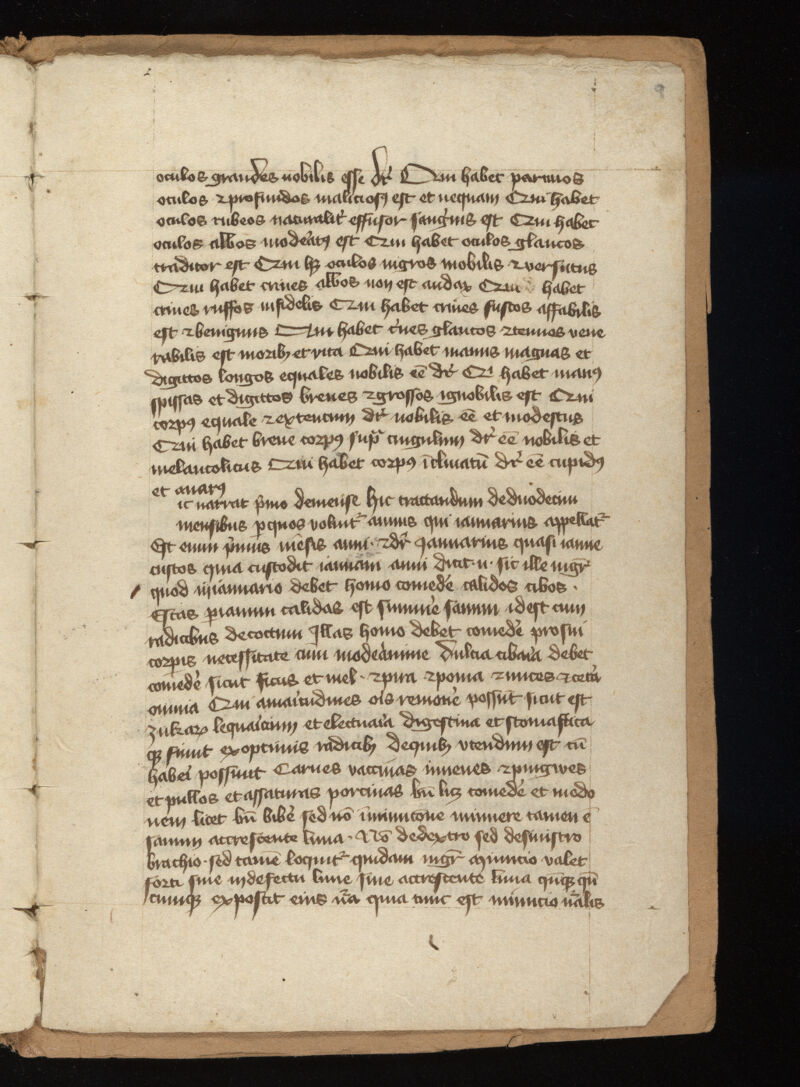 oculos grandes nobilis esse dr̄ Qui habet paruuos
oculos ⁊ profundos maliciosꝰ est et nequam Qui habet
oculos rubeos naturalit᷑ effusor sangīs est Qui habet
oculos albos moderatꝰ est Qui habet oculos glaucos
traditor est Qui hꝫ oculos nigros mobilis ⁊ versutus
Qui habet crines albos non est audax Qui habet
crines ruffos infidelis Qui habet crines fuscos affabilis
est ⁊ benignus Qui habet c̄nes glaucos ⁊ tenuos vene
rabilis est moribꝫ et vita Qui habet manus magnas et
digittos longos equales nobilis eē dr̄ Qi habet manꝰ
spissas et digittos breues ⁊ grossos ignobilis est Qui
corpꝰ equale ⁊ extentum dr̄ nobilis eē et modestus
Qui habet breue corpꝰ supra cingulum dr̄ eē nobilis et
melancolicus Qui habet corpꝰ īclinatū dr̄ eē cupidꝰ
et auarꝰ
ic narrat p̄mo de mense Hic tractandum de duodecim
mensibus ꝑ quos voluit᷑ annus qui ianuarius appellat᷑
Est enim p̄mus mēsis anni · ⁊ dr̄ Januarius quasi ianue
custos quia custodit ianuam anni dicit · n · sic ille mgr̄
quod in ianuario debet homo comedē calidos cibos ·
Escas calidas est summe sanum id est cum
radicibus decoctum Illas homo debet comedē pro sui
corpīs necessitate cum moderamine Dulcia cibaria debet
comedē sicut ficus et mel · ⁊ pira ⁊ poma ⁊ nuces ⁊ cetera
omnia Qui amaritudines oīs remouē possūt sicut est
et electuaria digestiua et stomatica
qꝫ fiunt ex optimis radicibꝫ de quibꝫ vtendum est cū
haberi possunt Carnes vaccinas iuuenes ⁊ pingwes
et pullos et assaturas porcinas bn̄ licꝫ comedē et modo
nem licet bn̄ bibē sed nō īminucione minuere tamen ē
sanum accrescente luna · Nō de dextro sed de sinistro
brachio · sed tamē loquit᷑ quidam mgr̄ minucio valet
forti siue in defectu lune siue accrescente luna
cumqꝫ exposcit eius nr̄a quia tunc est minucio nr̄alis